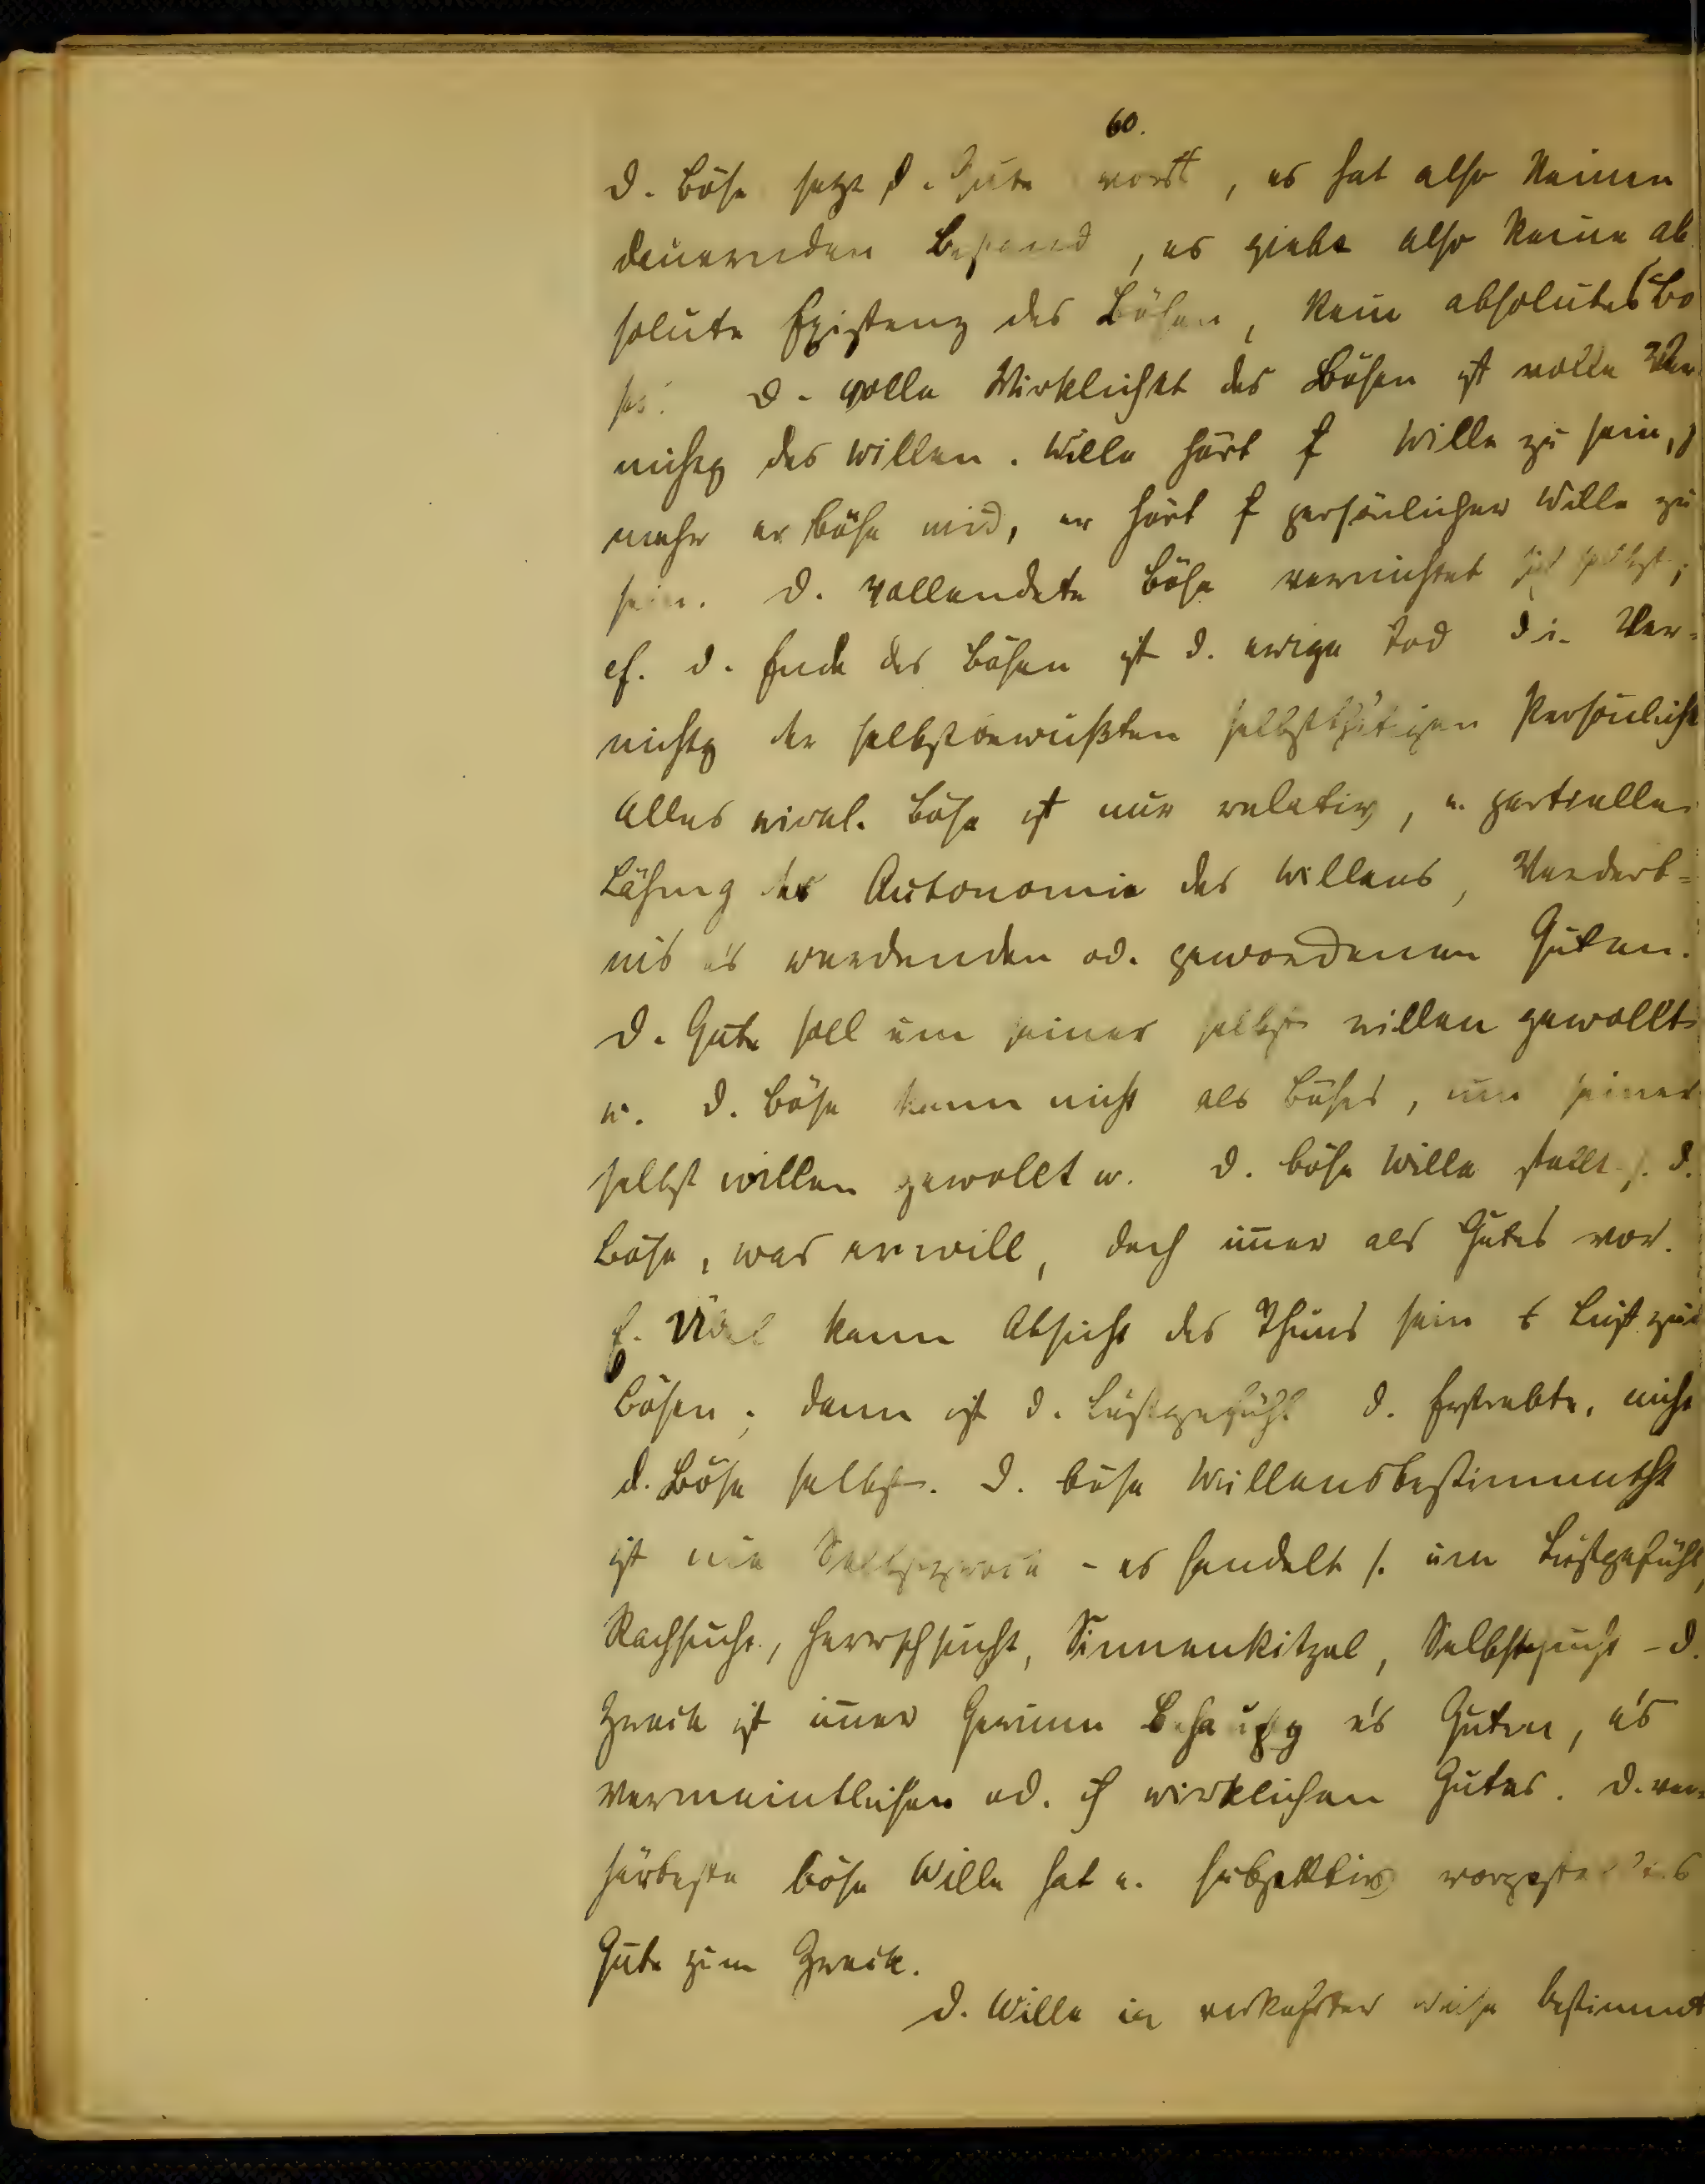 60.
D. Böse setzt d. Gute vor, es hat also keinen
dauernden Bestand, es giebt also keine ab
solute Existenz des Bösen, kein absolutes Bö
ses. D. volle Wirklichkt des Bösen ist volle Ver
nichtg des Willen. Wille hört Wille zu sein,
mehr er böse wird, er hört persönlicher Wille zu
sein. D. vollendete Böse vernichtet sich selbst;
cf. d. Ende des Bösen ist d. ewige Tod d. i. Ver-
nichtg der selbstbewußten selbstthätigen Persönlichk
Alles wirkl. Böse ist nur relativ, e. partielle
Lähmg der Autonomie des Willens, Verderb=
nis e's werdenden od. gewordenen Guten.
D. Gute soll um seiner selbst willen gewollt
w. D. Böse kann nicht als Böses, um seiner
selbst willen gewollt w. D. böse Wille stellt s. d.
Böse, was er will, doch im̄er als Gutes vor.
kann Absicht des Thuns sein Lust zum
Bösen; dann ist d. Lustgefühl d. Erstrebte, nicht
d. Böse selbst. D. böse Willensbestimmtht
ist nie Selbstzweck - es handelt s. um Lustgefühl,
Rachsucht, Herrschsucht, Sinnenkitzel, Selbstsucht - d.
Zweck ist im̄er Gewinn Behauptg e's Guten, e's
vermeintlichen od. wirklichen Gutes. D. ver=
härteste böse Wille hat e. subjektiv vorgestelltes
Gute zum Zweck.
D. Wille in verkehrter Weise bestimmt